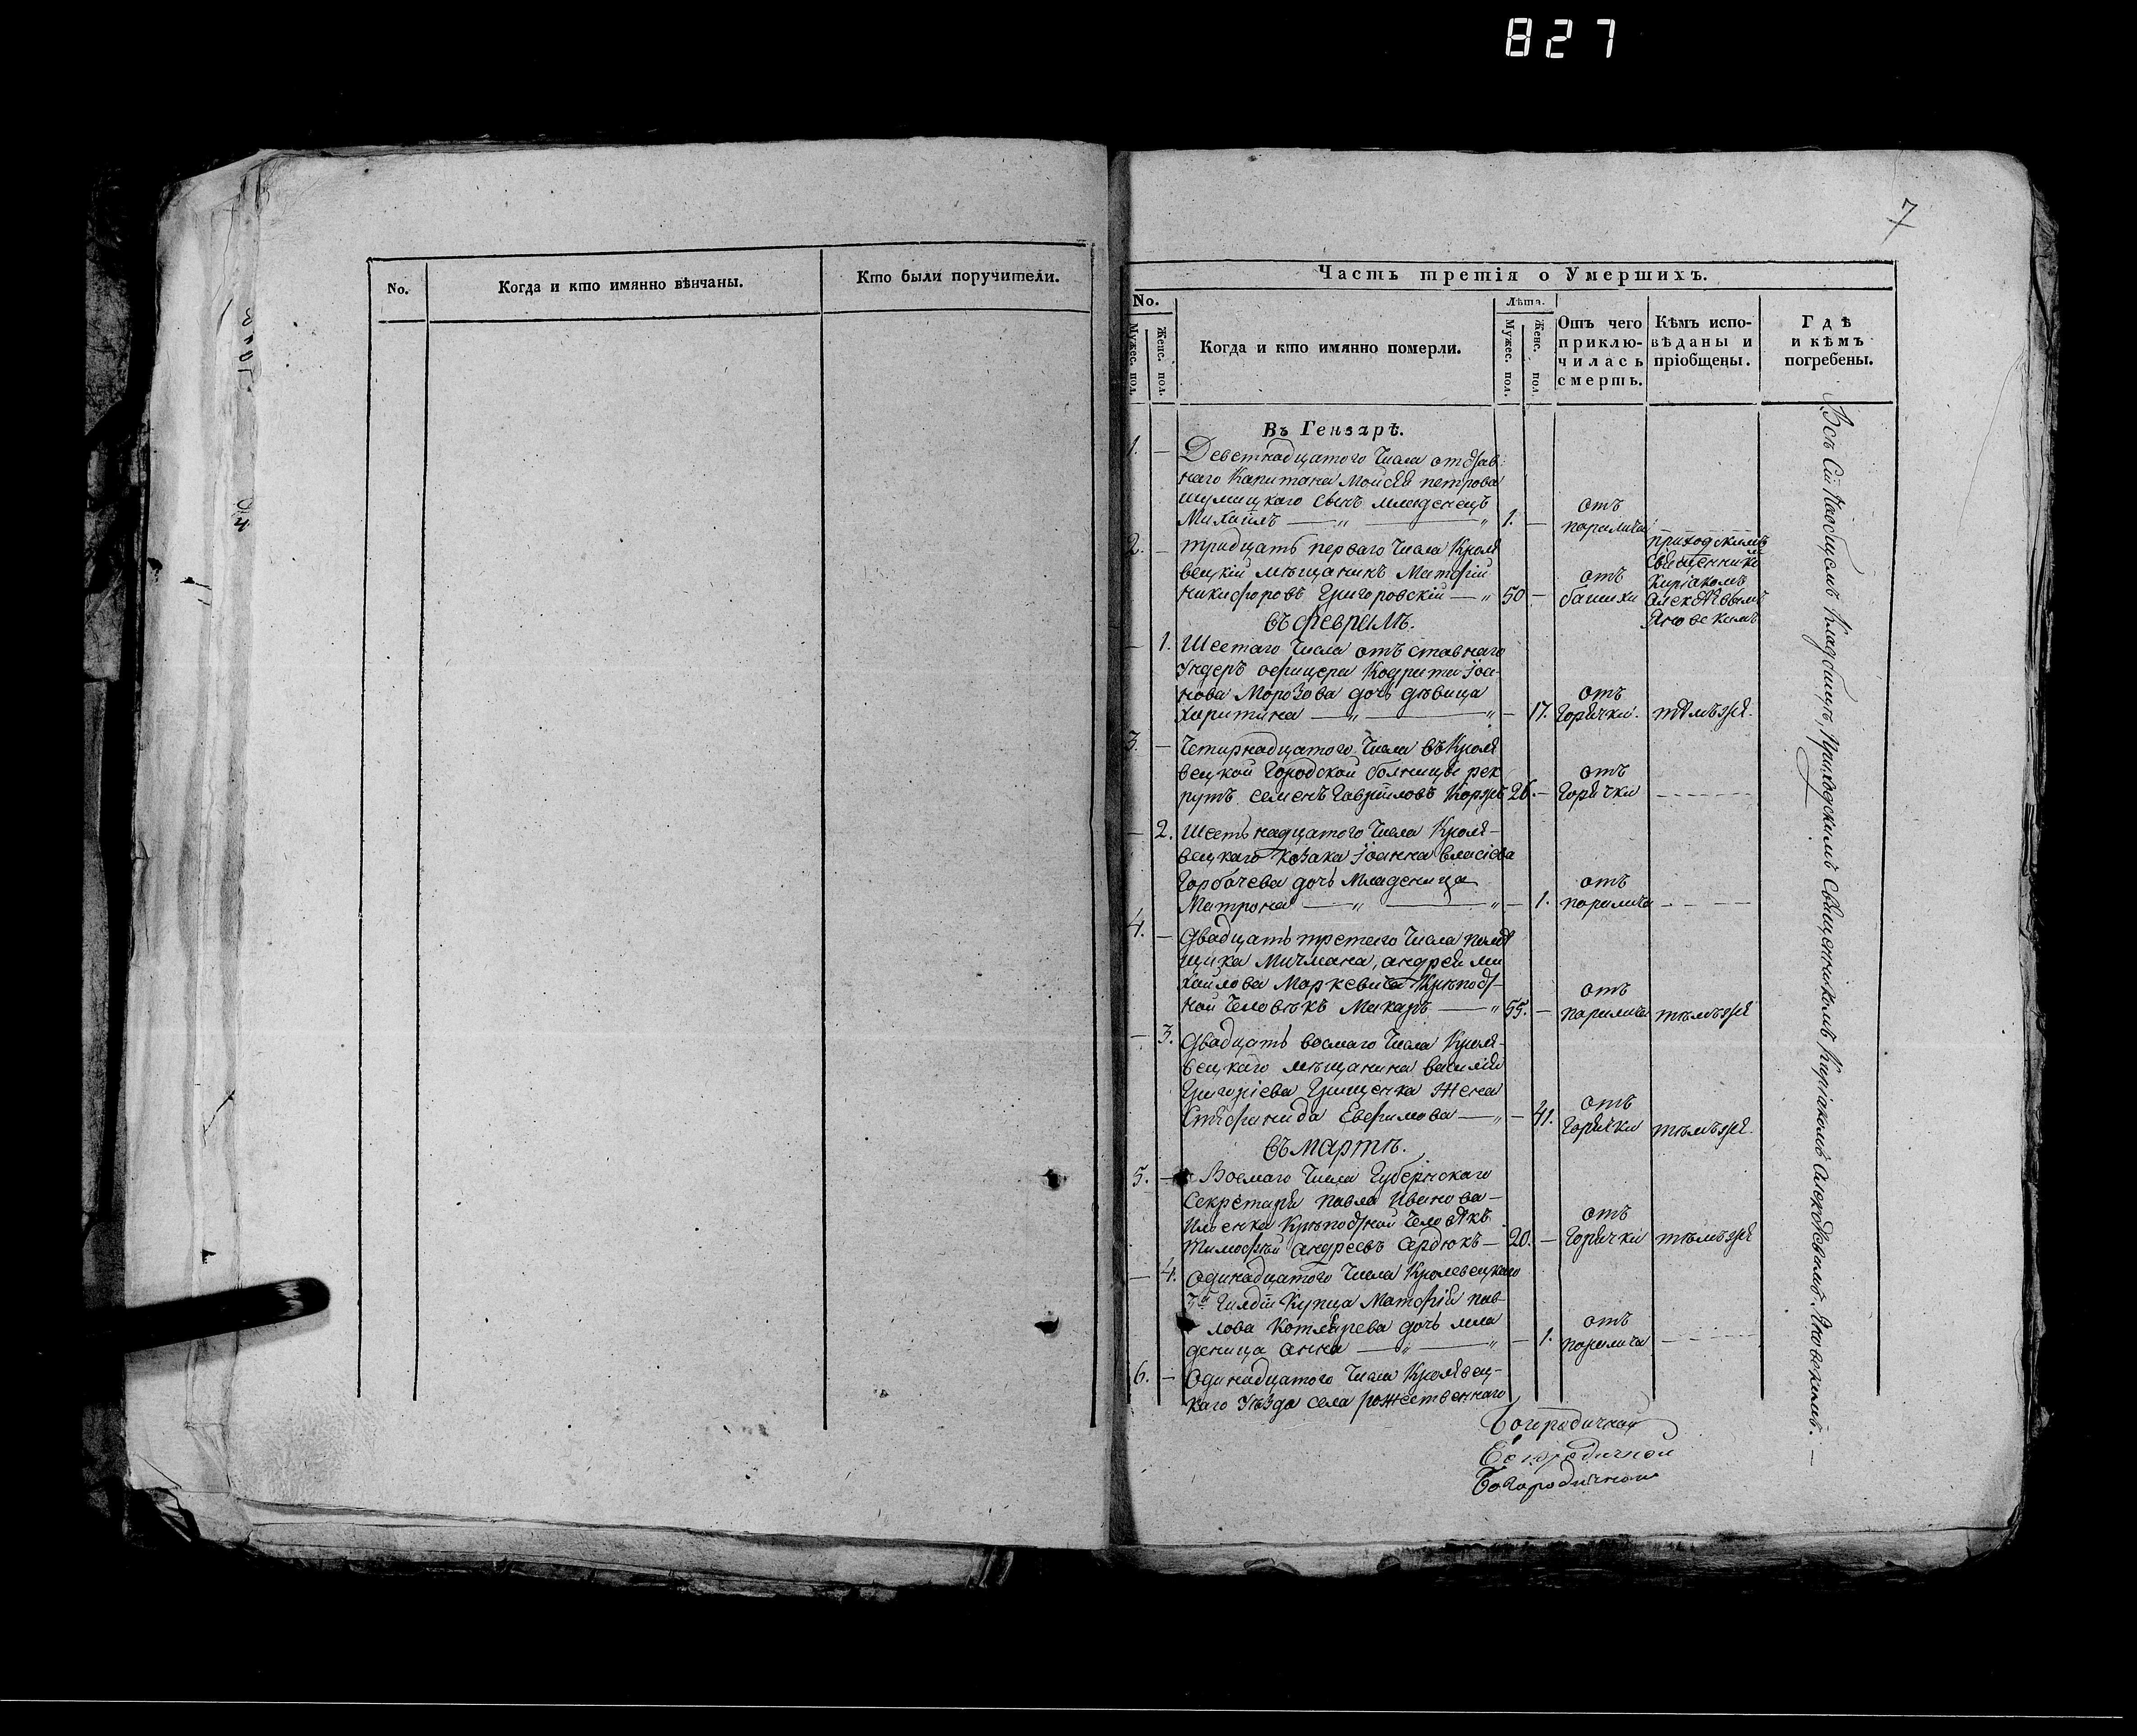 827
7
No.
Когда и кто имянно вѣнчаны.
Кто были поручители.
Часть третія о Умершихъ.
No.
Мужес. пол.
Женс. пол.
Когда и кто имянно померли.
Лѣта.
Мужес. пол.
Женс. пол.
Отъ чего приклю-
чилась смерть.
Кѣмъ испо-
вѣданы и
пріобщены.
Гдѣ
и кѣмъ
погребены.
Въ Генварѣ.
1. — Деветнадцатого Числа отстав:
наго Капитана Моисея петрова
шумицкаго Сынъ младенецъ
Михаилъ — 1. — отъ паралича
2. — тридцать перваго Числа Кроля
вецкій мѣщанинъ Матфій
никифоровъ Григоровскій — 50 — отъ
приходскимъ
Священнико
Киріакомъ
Алексѣевымъ
Яновскимъ
Въ февралѣ.
— 1. Шестаго Числа отъставнаго
Ундеръ офицера Кодрата Іоа-
нова Морозова дочь дѣвица
Харитина — 17. отъ Горячки. тѣмъже.
3. — Четырнадцатого Числа въ Кроля
вецкой Городской болницы рек
рутъ Семенъ Гавріиловъ Коржъ 26. — отъ Горячки
— 2. Шестьнадцатого Числа Кроля-
вецкаго Козака Іоанна Власіева
Горбачева дочь Младеница
Матрона — 1. отъ паралича
4. — Двадцать третего Числа помѣ
щика Мичмана, андрея ми
хайлова Маркевича Крѣпост-
ной Человѣкъ Макаръ — 55. — отъ паралича тѣмъже
— 3. Двадцать восмаго Числа Кроля-
вецкаго мѣщанина Василія
Григоріева Грищенка Жена
Евфимова — 41. отъ Горячки тѣмъже.
Въ мартѣ.
5. — Восмаго Числа Губернскаго
Секретаря павла Иванова-
Иленка Крѣпостной Человѣкъ
Тимофѣй андреевъ Сердюкъ — 20. — отъ Горячки тѣмъже
— 4. Одинадцатого Числа Кролевецкаго
3й Гилдіи Купца Матфія пав-
лова Котлярева дочь мла
деница анна — 1. отъ паралича
6. — Одинадцатого Числа Кролявец-
каго Уѣзда села рожественнаго
Всѣ Сіи Наобщемъ Кладбищѣ, Приходскимъ Священникомъ Киріакомъ Алексѣевымъ Яновскимъ. —
Богородичной
Богородичной
Богородичной